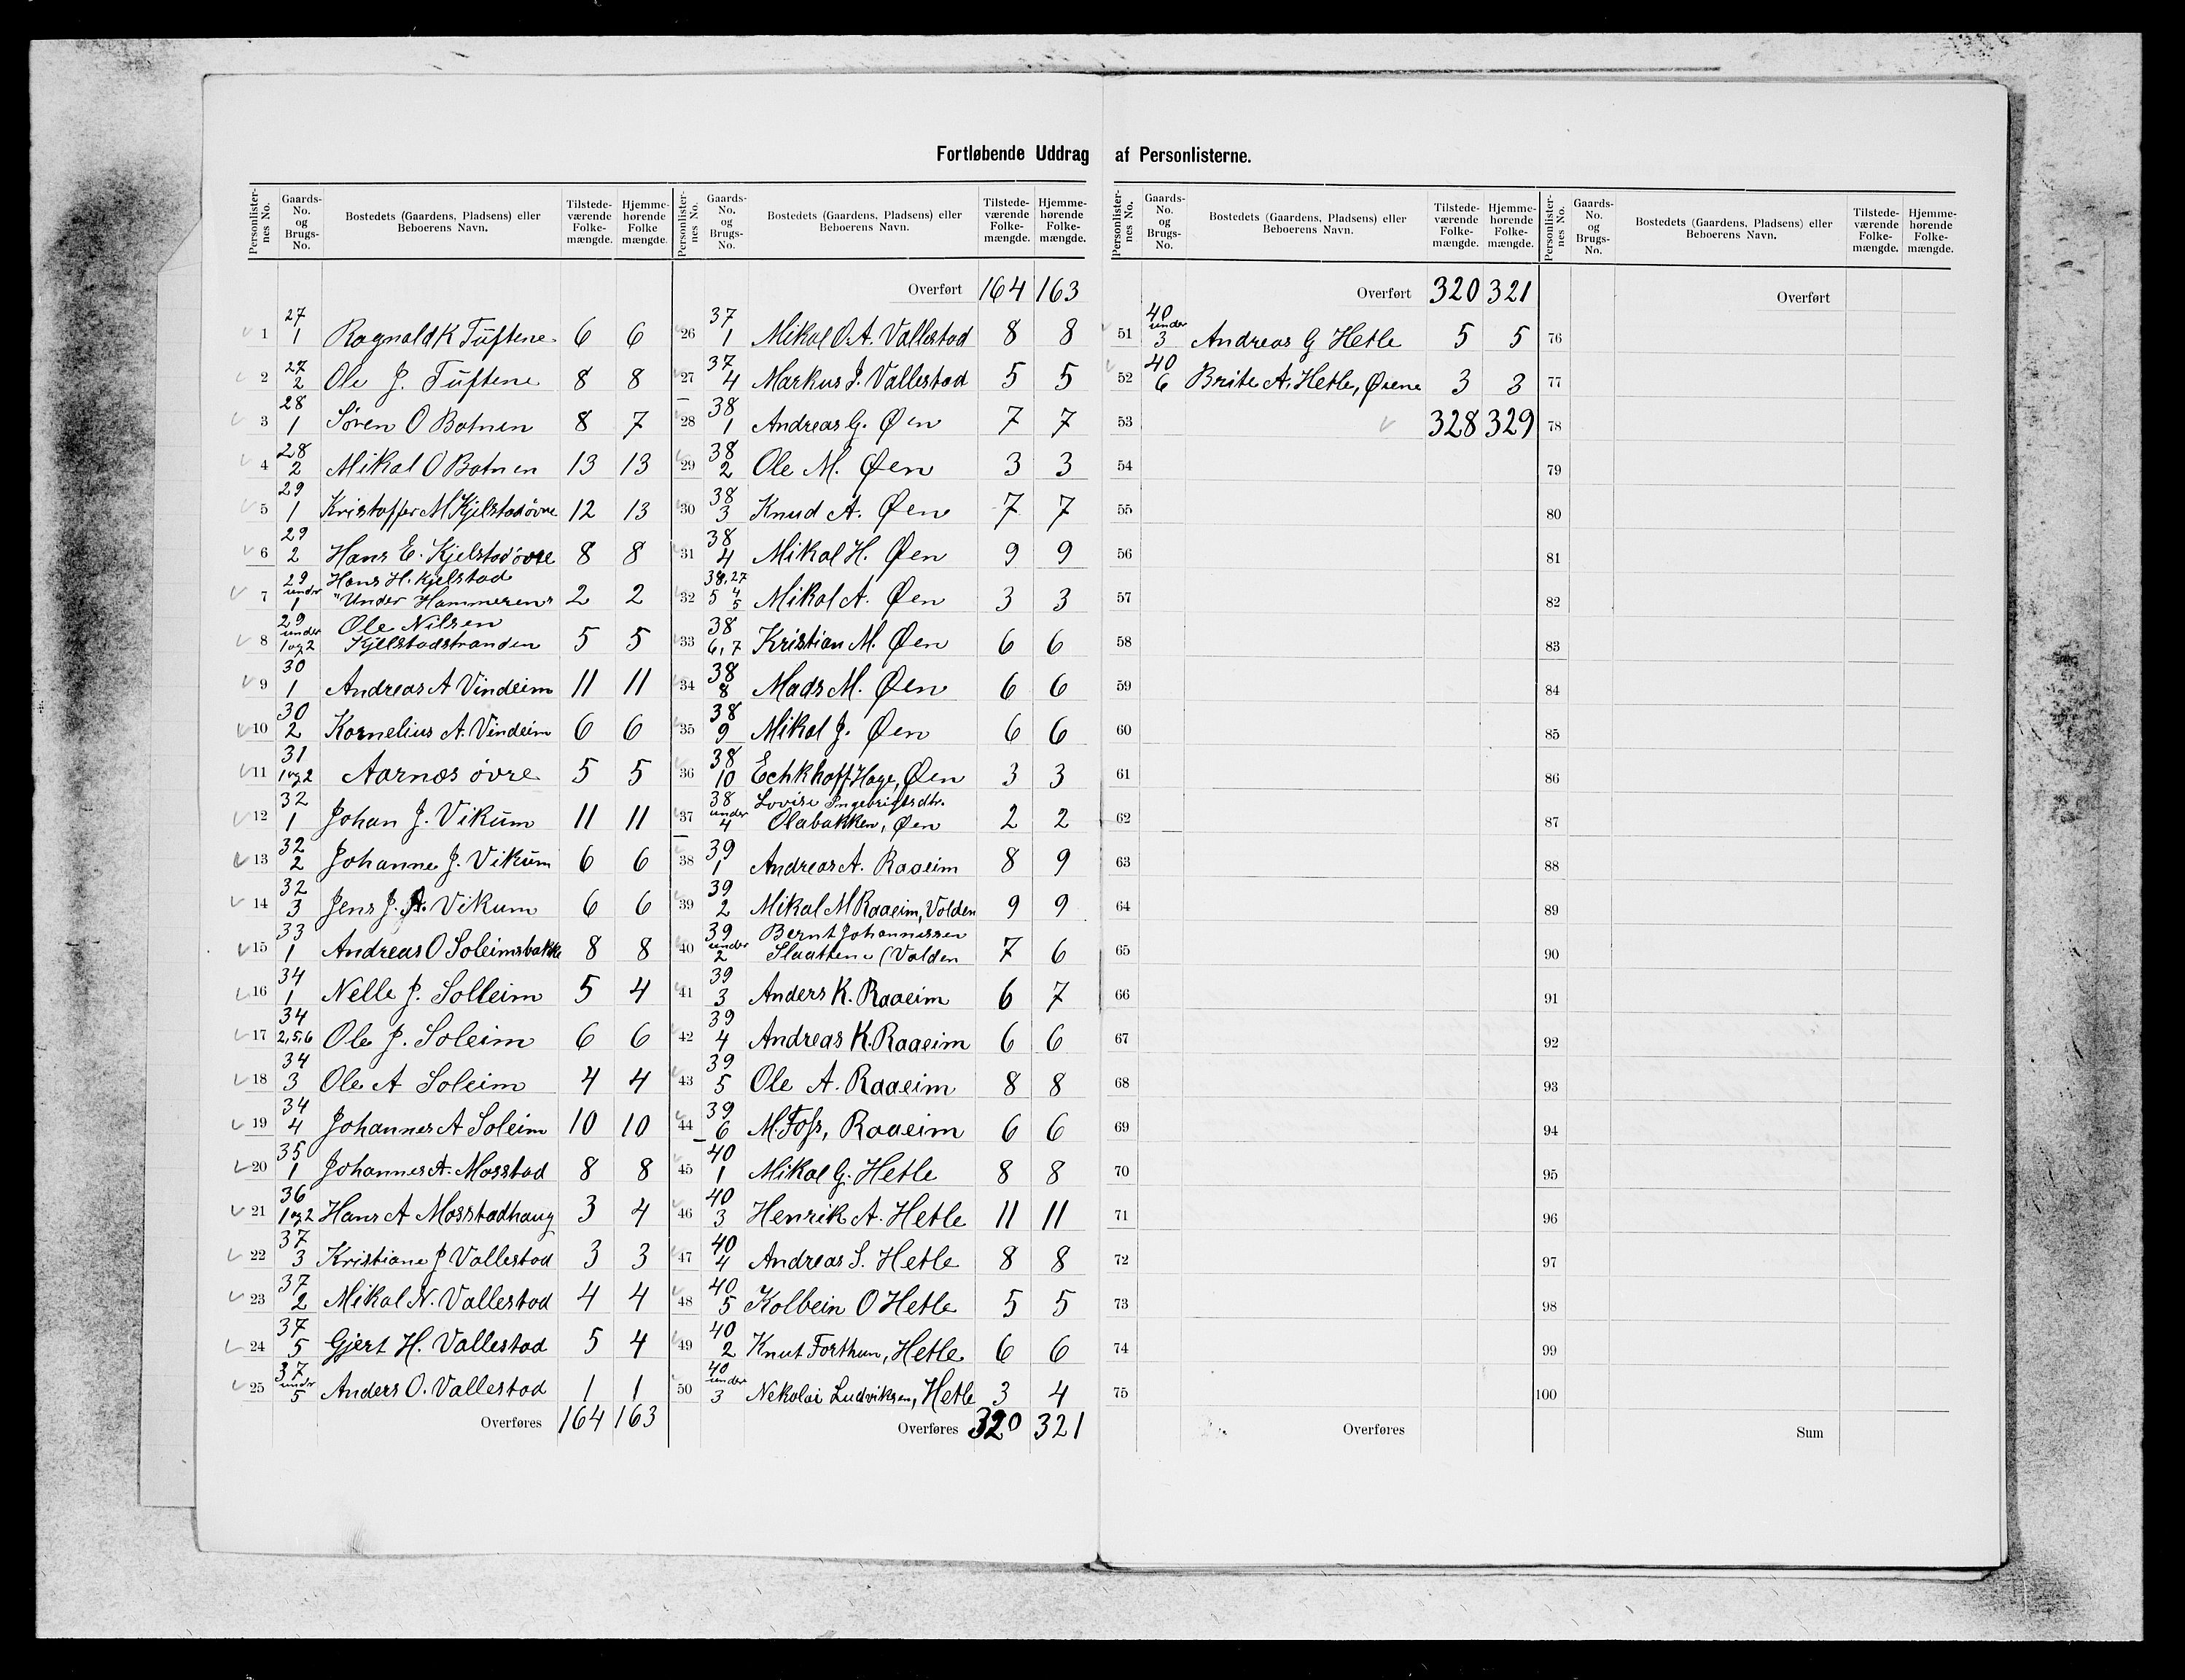 Fortløbende Uddrag af Personlisterne.
Personlisternes No. Gaards-No. og Brugs-No. Bostedets (Gaardens, Pladsens) eller Beboerens Navn. Tilstedeværende Folkemængde. Hjemmehørende Folkemængde.
1 27 1 Ragnald K Tüftene 6 6
2 27 2 Ole J. Tüftene 8 8
3 28 1 Søren O Botnen 8 7
4 28 2 Mikal O Botnen 13 13
5 29 1 Kristoffer M Kjelstadøvre 12 13
6 29 2 Hans E. Kjelstadøvre 8 8
7 29 under 1 Hans H. Kjelstad
"Under Hammeren" 2 2
8 29 under 1 og 2 Ole Nilsen
Kjelstadstranden 5 5
9 30 1 Andreas A Vindeim 11 11
10 30 2 Kornelius A. Vindeim 6 6
11 31 1 og 2 Aarnæs øvre 5 5
12 32 1 Johan J. Vikūm 11 11
13 32 2 Johanne J. Vikūm 6 6
14 32 3 Jens J. A. Vikum 6 6
15 33 1 Andreas O Soleimsbakke 8 8
16 34 1 Nelle J. Solleim 5 4
17 34 2,5,6 Ole J. Soleim 6 6
18 34 3 Ole A Soleim 4 4
19 34 4 Johannes A Soleim 10 10
20 35 1 Johannes A. Mosstad 8 8
21 36 1 og 2 Hans A Mosstadhaug 3 4
22 37 3 Kristiane J Vallestad 3 3
23 37 2 Mikal N. Vallestad 4 4
24 37 5 Gjert H. Vallestad 5 4
25 37 under 5 Anders O. Vallestad 1 1
Overføres 164 163
Personlisternes No. Gaards-No. og Brugs-No. Bostedets (Gaardens, Pladsens) eller Beboerens Navn. Tilstedeværende Folkemængde. Hjemmehørende Folkemængde.
Overført 164 163
26 37 1 Mikal O. A. Vallestad 8 8
27 37 4 Markus J. Vallestad 5 5
28 38 1 Andreas G. Øen 7 7
29 38 2 Ole M. Øen 3 3
30 38 3 Knud A. Øen 7 7
31 38 4 Mikal H. Øen 9 9
32 38,27 5 4 5 Mikal A. Øen 3 3
33 38 6,7 Kristian M. Øen 6 6
34 38 8 Mads M. Øen 6 6
35 38 9 Mikal J. Øen 6 6
36 38 10 Echkhoff Hage, Øen 3 3
37 38 under 4 Lovise Ingebrigtsdtr.
Olabakken, Øen 2 2
38 39 1 Andreas A. Raaeim 8 9
39 39 2 Mikal M Raaeim, Volden 9 9
40 39 under 2 Bernt Johannessen
Slaattene (Volden 7 6
41 39 3 Anders K. Raaeim 6 7
42 39 4 Andreas K. Raaeim 6 6
43 39 5 Ole A. Raaeim 8 8
44 39 6 M. Foss, Raaeim 6 6
45 40 1 Mikal G. Hetle 8 8
46 40 3 Henrik A. Hetle 11 11
47 40 4 Andreas S. Hetle 8 8
48 40 5 Kolbein O Hetle 5 5
49 40 2 Knut Forthun, Hetle 6 6
50 40 under 3 Nekolai Ludviksen, Hetle 3 4
Overføres 320 321
Personlisternes No. Gaards-No. og Brugs-No. Bostedets (Gaardens, Pladsens) eller Beboerens Navn. Tilstedeværende Folkemængde. Hjemmehørende Folkemængde.
Overført 320 321
51 40 under 3 Andreas G Hetle 5 5
52 40 6 Brite A. Hetle, Øiene 3 3
53 328 329
54
55
56
57
58
59
60
61
62
63
64
65
66
67
68
69
70
71
72
73
74
75
Overføres
Personlisternes No. Gaards-No. og Brugs-No. Bostedets (Gaardens, Pladsens) eller Beboerens Navn. Tilstedeværende Folkemængde. Hjemmehørende Folkemængde.
Overført
76
77
78
79
80
81
82
83
84
85
86
87
88
89
90
91
92
93
94
95
96
97
98
99
100
Sum